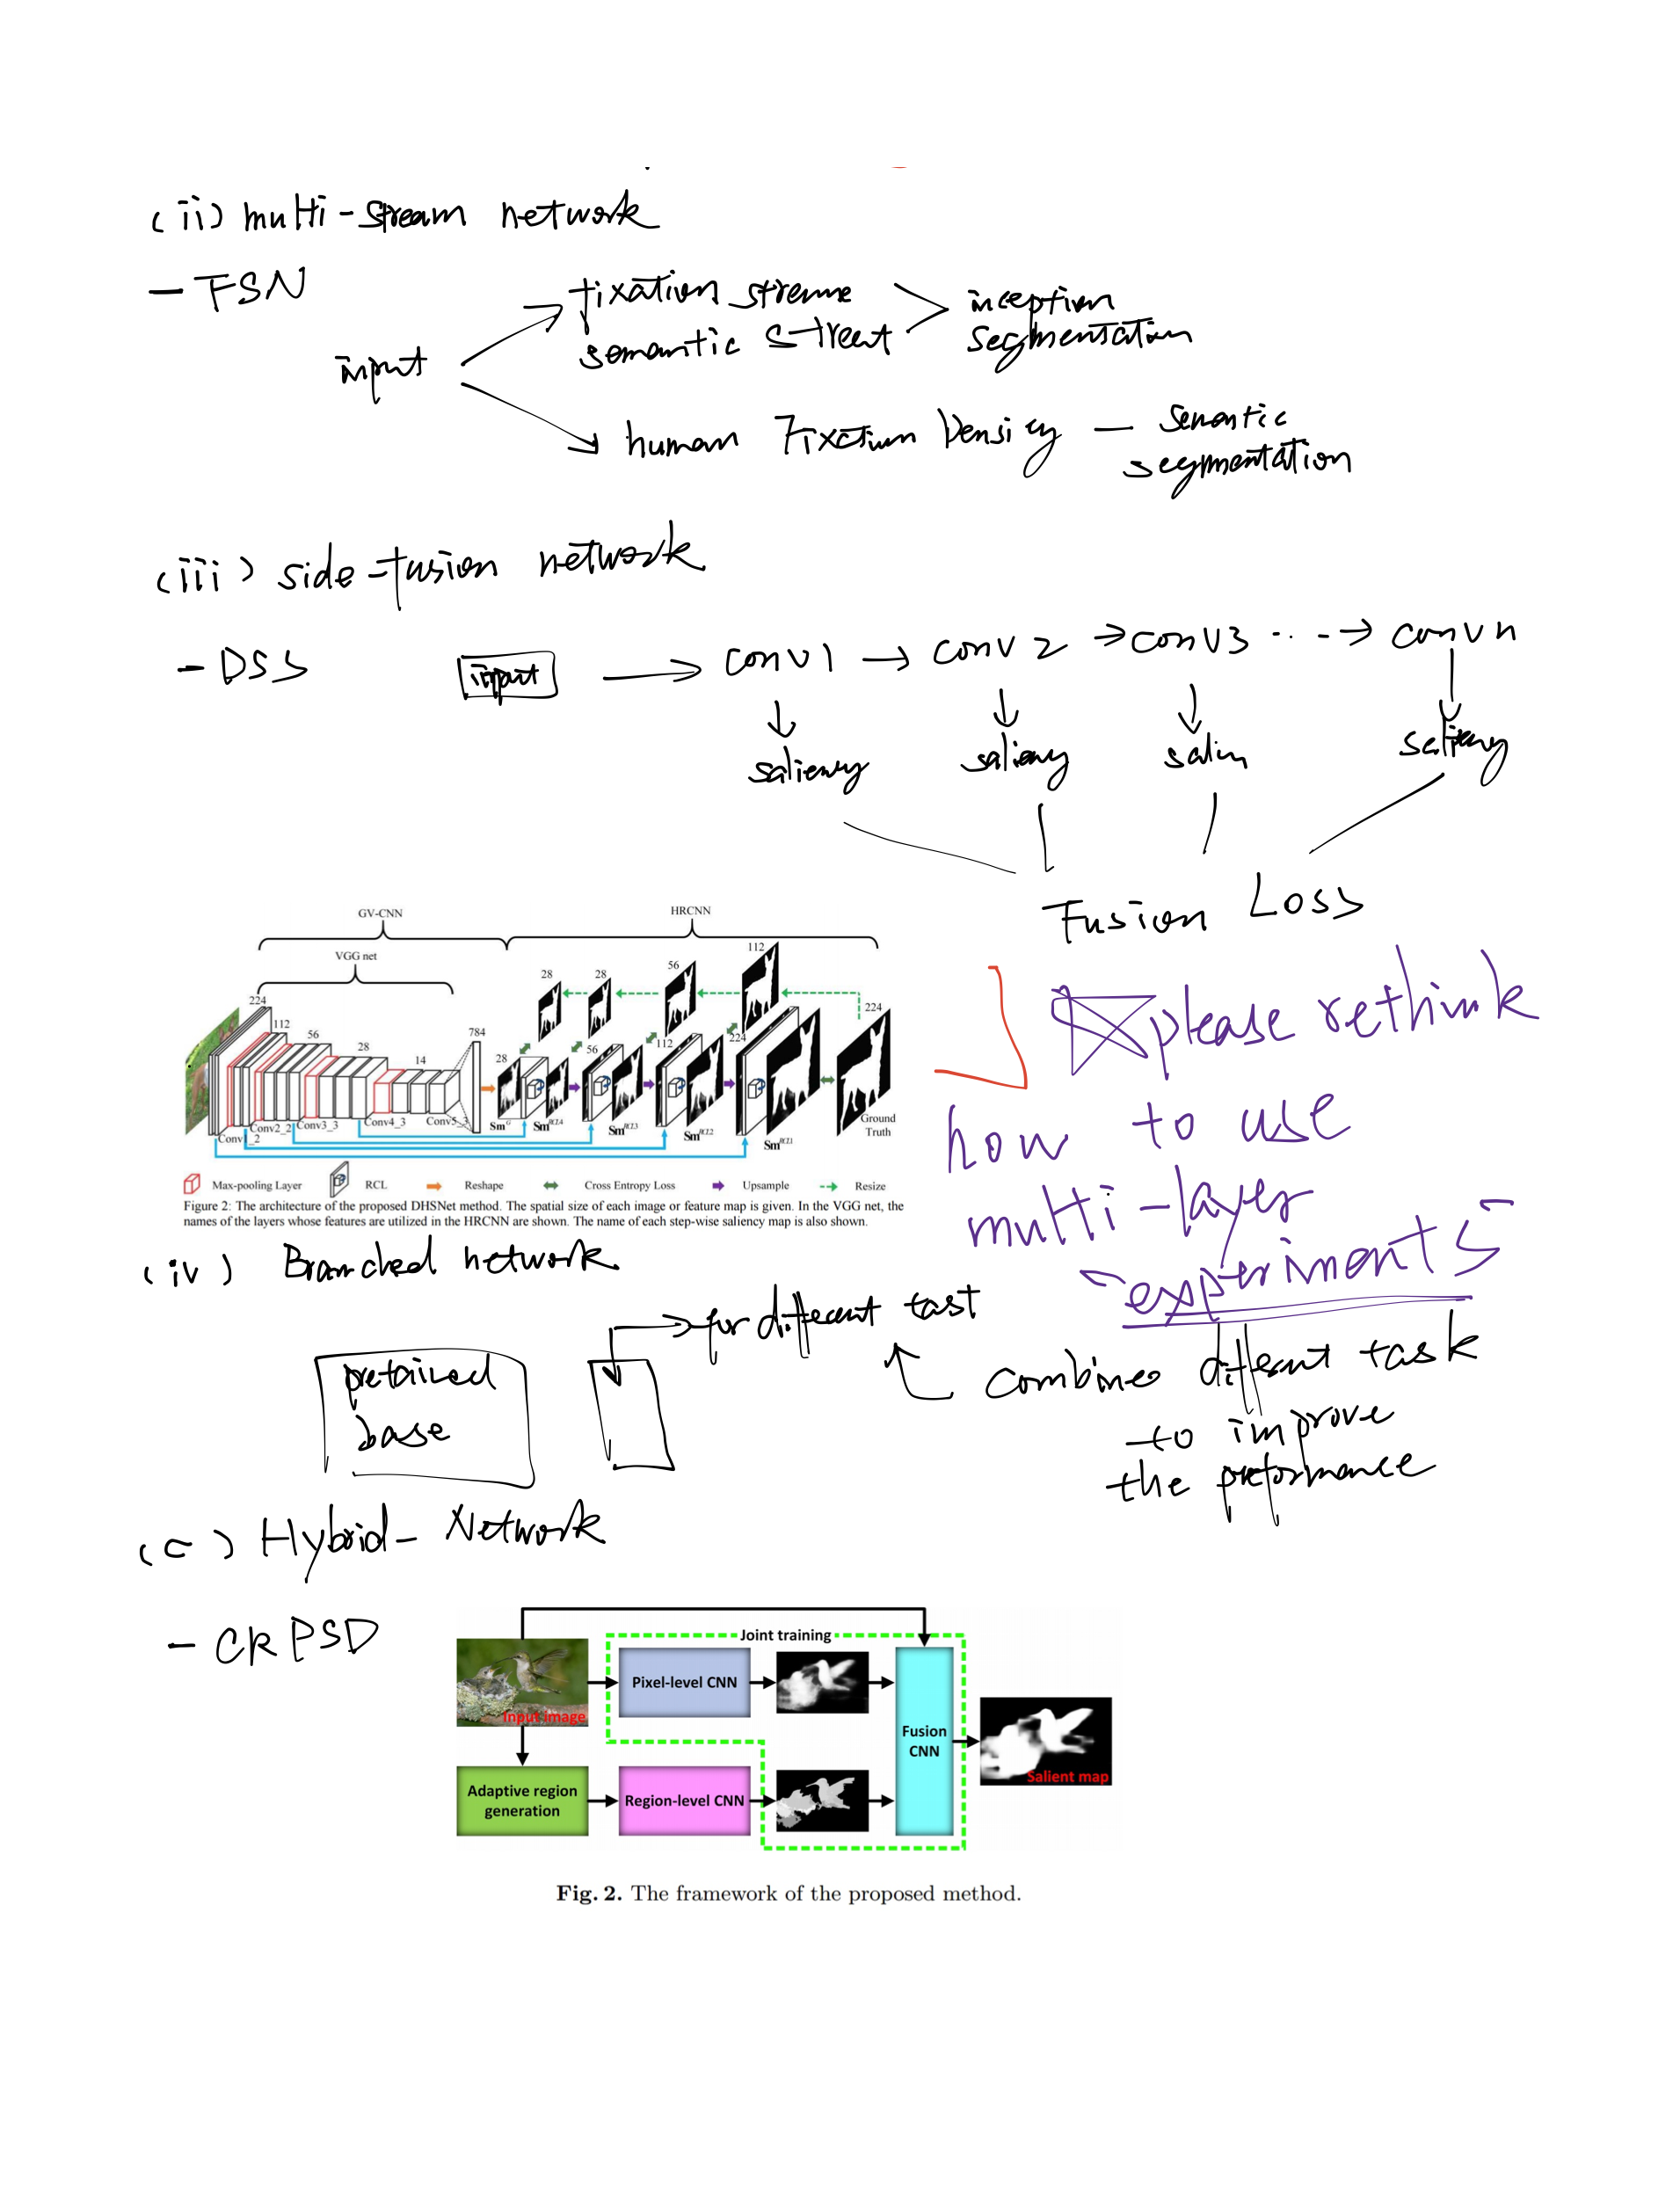 (ii) multi-stream network
- FSN
fixation streme
semantic Streat
inception
segmentation
input
human Fixation Density — semantic
segmentation
(iii) side-fusion network
- DSS
input → conv1 → conv2 → conv3 ... → convn
saliency saliency salien saliency
Fusion Loss
GV-CNN HRCNN
VGG net
224 112 56 28 14 784
28 28 56 112 224
28 56 112 224
Conv1_2 Conv2_2 Conv3_3 Conv4_3 Conv5_3
Sm^G Sm^RCL4 Sm^RCL3 Sm^RCL2 Sm^RCL1
Ground
Truth
Max-pooling Layer RCL Reshape Cross Entropy Loss Upsample Resize
Figure 2: The architecture of the proposed DHSNet method. The spatial size of each image or feature map is given. In the VGG net, the
names of the layers whose features are utilized in the HRCNN are shown. The name of each step-wise saliency map is also shown.
please rethink
how to use
multi-layer
experiments
(iv) Branched network
for different tast
pretained
base
combine diffeant task
to improve
the preformance
(c) Hybrid- Network
- CRPSD
Joint training
Input image
Pixel-level CNN
Adaptive region
generation
Region-level CNN
Fusion
CNN
Salient map
Fig. 2. The framework of the proposed method.